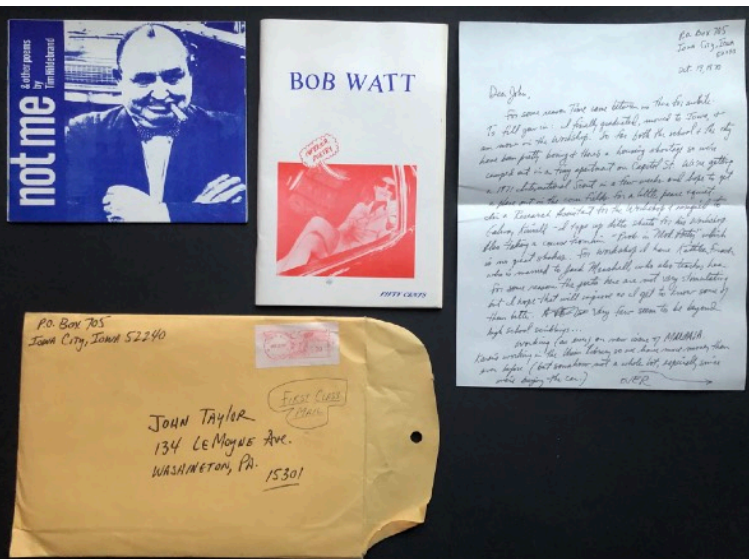 not me
& other poems
by
Tim Hildebrand
BOB WATT
POETRY
FIFTY CENTS
P.O. Box 705
Iowa City, Iowa
Oct. 19, 19
Dear John,
For some reason there came between us
To fill you in: I finally graduated, moved to Iowa, &
am now in the Workshop. So far both the school & the city
have been pretty boring & there's a housing shortage so we're
camped out in a tiny apartment on Capitol St. We're getting
a 1971 International Scout in a few weeks and hope to get
a place out in the corn fields for a little peace & quiet.
I'm a Research Assistant for the Workshop & assigned to
Galway Kinnell - I type up ditto sheets for his workshop
Also taking a course from him - in Mod Poetry which
is no great shakes. For workshop I have Kathleen Fraser
who is married to Jack Marshall, who also teaches here.
For some reason the poets here are not very stimulating
but I hope that will improve as I get to know some of
them better. Very few seem to be beyond
high school scribblings...
Working (as ever) on new issue of
working in the Main Library so we have more money than
ever before (but somehow not a whole lot, especially since
we're buying the car) OVER
P.O. Box 705
Iowa City, Iowa 52240
First Class
Mail
John Taylor
134 LeMoyne Ave.
Washington, Pa.
15301